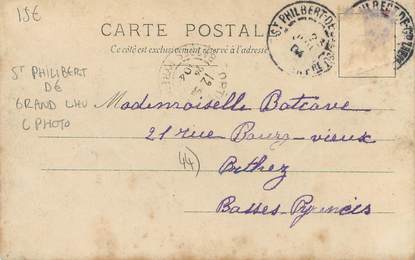 15€
CARTE POSTALE
Ce côté est exclusivement réservé à l'adresse
ST PHILIBERT-DE-
24
04
ST PHILIBERT
DE
GRAND LIEU
C PHOTO
Mademoiselle Batcave
21 rue Bourg-vieux
(44)
Orthez
Basses-Pyrénées